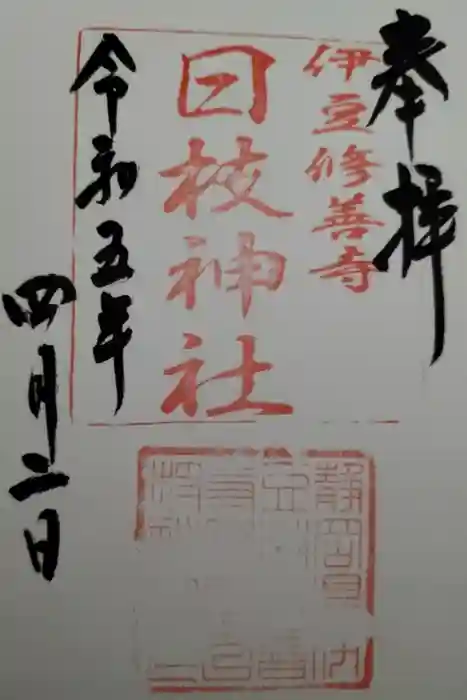 奉拝
伊豆修善寺
日枝神社
令和五年
四月二日
静岡県